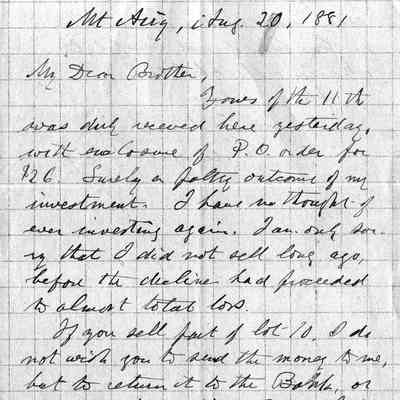 Mt Airy, Aug. 20, 1881
My Dear Brother,
Yours of the 11th
was duly received here yesterday,
with enclosure of P.O. order for
$26. Surely a paltry outcome of my
investment. I have no thought of
ever investing again. I am only sor-
ry that I did not sell long ago,
before the decline had proceeded
to almost total loss.
If you sell part of lot 10, I do
not wish you to send the money to me,
but to return it to the Bank, or